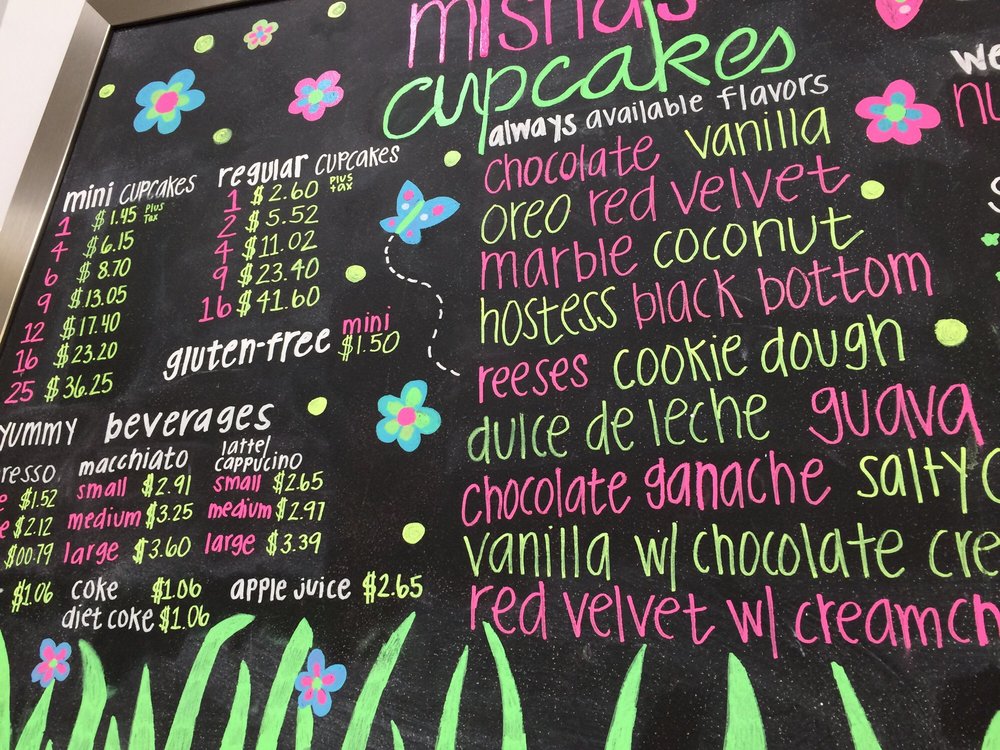 misha's
cupcakes
always available flavors
chocolate vanilla
oreo red velvet
marble coconut
hostess black bottom
reeses cookie dough
dulce de leche guava
chocolate ganache salty
vanilla w/ chocolate cre
red velvet w/ creamch
mini cupcakes
1 $1.45 plus tax
4 $6.15
6 $8.70
9 $13.05
12 $17.40
16 $23.20
25 $36.25
regular cupcakes
1 $2.60 plus tax
2 $5.52
4 $11.02
9 $23.40
16 $41.60
gluten-free mini $1.50
yummy beverages
resso
e $1.52
e $2.12
$00.79
macchiato
small $2.91
medium $3.25
large $3.60
latte/
cappucino
small $2.65
medium $2.97
large $3.39
$1.06 coke $1.06 apple juice $2.65
diet coke $1.06
we
nu